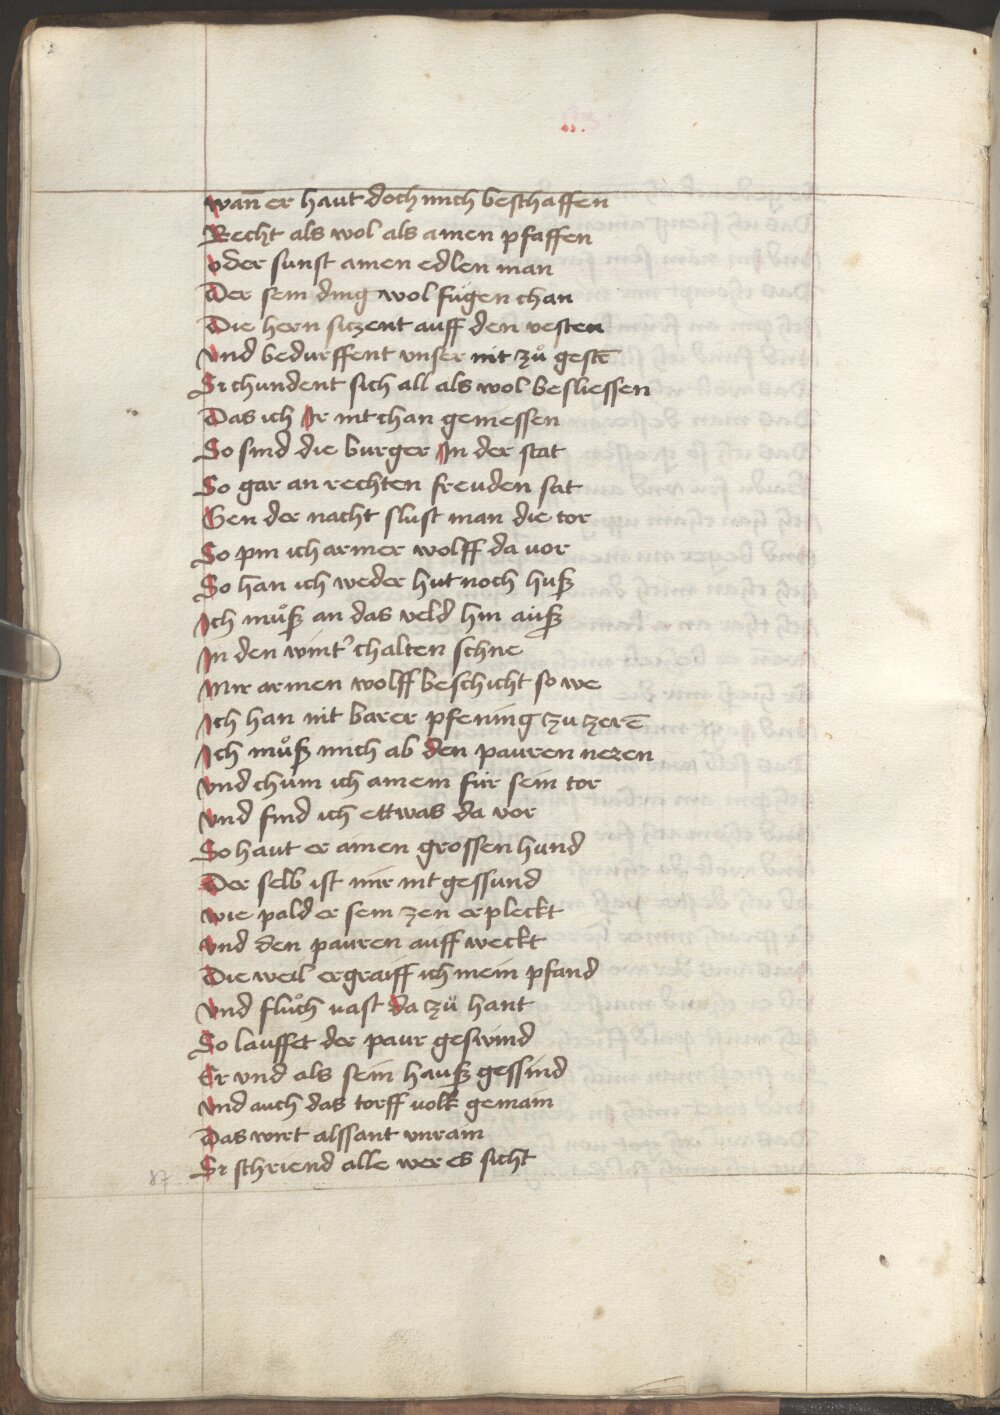 wan̄ er haut doch mich beschaffen
Recht als wol als amen pfaffen
oder sunst amen edlen man
Der sein ding wol fügen chan
Die hern siczent auff den vesten
vnd bedurffent vnser nit zů gestē
Si chundent sich all als wol besliessen
Das ich Ir nit chan geniessen
So sind die burger In der stat
So gar an rechten freuden sat
Gen der nacht slust man die tor
So pin ich armer wolff da vor
So han ich weder hut noch huß
Ich můß an das veld hin auß
In den wint' chalten schne
Mir armen wolff beschicht so we
Ich han nit barer pfening zu zerē
Ich můß mich ab den pauren neren
vnd chum ich amem für sein tor
vnd find ich ettwas da vor
So haut er ainen grossen hund
Der selb ist mir nit gessund
wie pald er sein zen erpleckt
vnd den pauren auff weckt
Die weil ergraiff ich mein pfand
vnd flůch vast da zů hant
So lauffet der paur geswind
Er vnd als sein hauß gessind
vnd auch das torff volk gemain
Das wirt alssant vnrain
Si schriend alle wer es sicht
87